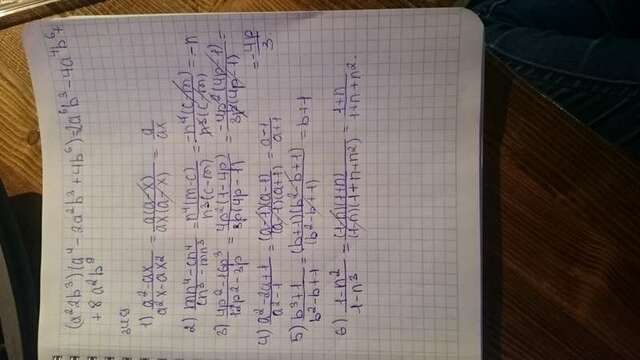 (a²2b³)(a⁴-2a²b³+4b⁶)=2a⁶b³-4a⁴b⁶+
+8a²b⁹
1) a²-ax / a²x-ax² = a(a-x) / ax(a-x) = a / ax
2) mn⁴-cn⁴ / cn³-mn³ = n⁴(m-c) / n³(c-m) = -n⁴(c-m) / n³(c-m) = -n
3) 4p²-16p³ / 12p²-3p = 4p²(1-4p) / 3p(4p-1) = -4p²(4p-1) / 3p(4p-1) =
= -4p / 3
4) a²-2a+1 / a²-1 = (a-1)(a-1) / (a-1)(a+1) = a-1 / a+1
5) b³+1 / b²-b+1 = (b+1)(b²-b+1) / (b²-b+1) = b+1
6) 1-n² / 1-n³ = (1-n)(1+n) / (1-n)(1+n+n²) = 1+n / 1+n+n².